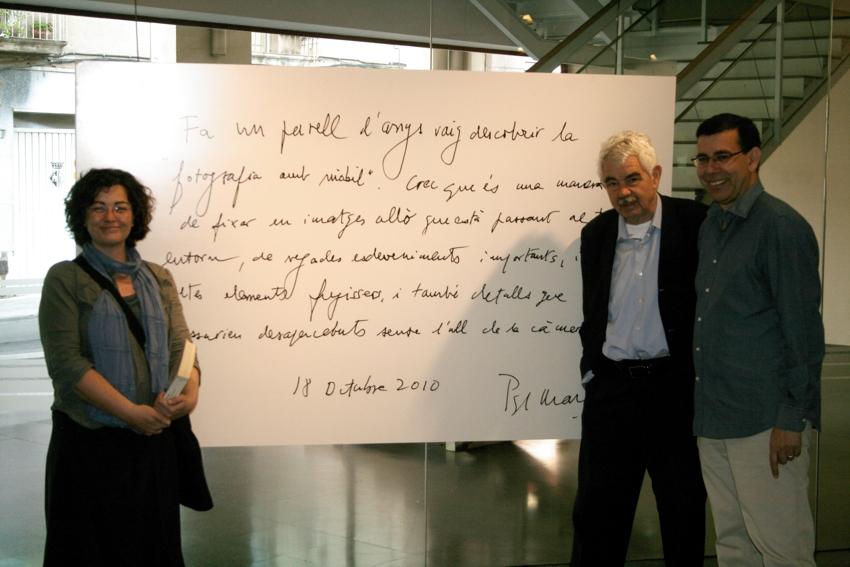 Fa un parell d'anys vaig descobrir la
fotografia amb mòbil". Crec que és una manera
de fixar en imatges allò que està passant al
entorn, de vegades esdeveniments importants,
elements fugissers, i també detalls que
desapercebuts sense l'ull de la càmera
18 Octubre 2010